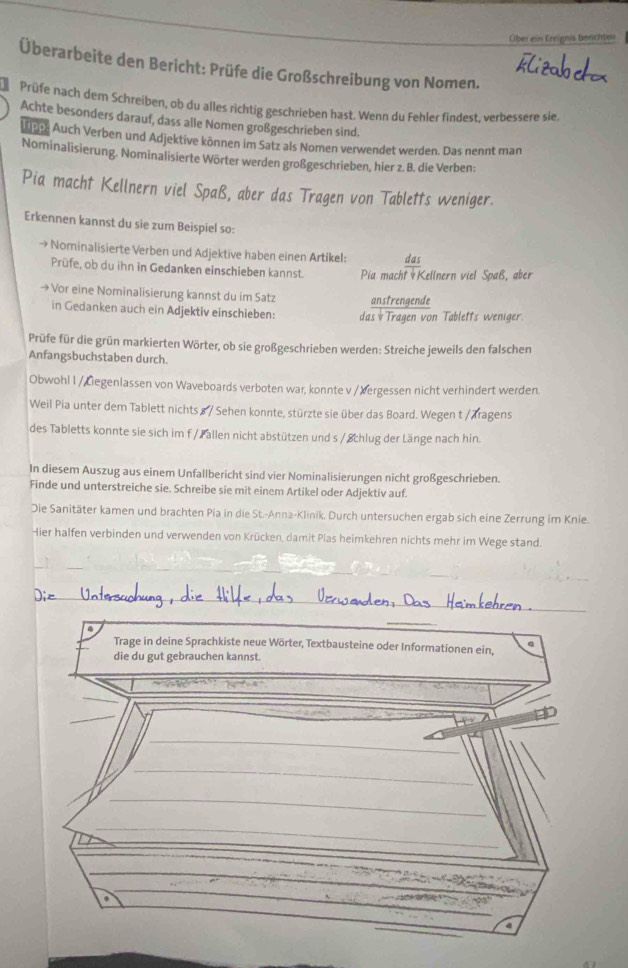 Über ein Ereignis berichten
Elizabeta
Überarbeite den Bericht: Prüfe die Großschreibung von Nomen.
Prüfe nach dem Schreiben, ob du alles richtig geschrieben hast. Wenn du Fehler findest, verbessere sie.
Achte besonders darauf, dass alle Nomen großgeschrieben sind.
Tipp: Auch Verben und Adjektive können im Satz als Nomen verwendet werden. Das nennt man
Nominalisierung. Nominalisierte Wörter werden großgeschrieben, hier z. B. die Verben:
Pia macht Kellnern viel Spaß, aber das Tragen von Tabletts weniger.
Erkennen kannst du sie zum Beispiel so:
→ Nominalisierte Verben und Adjektive haben einen Artikel:
Prüfe, ob du ihn in Gedanken einschieben kannst.
das
Pia macht Kellnern viel Spaß, aber
→ Vor eine Nominalisierung kannst du im Satz
in Gedanken auch ein Adjektiv einschieben:
anstrengende
das Tragen von Tabletts weniger.
Prüfe für die grün markierten Wörter, ob sie großgeschrieben werden: Streiche jeweils den falschen
Anfangsbuchstaben durch.
Obwohl l / Liegenlassen von Waveboards verboten war, konnte v / Vergessen nicht verhindert werden.
Weil Pia unter dem Tablett nichts s / Sehen konnte, stürzte sie über das Board. Wegen t / Tragens
des Tabletts konnte sie sich im f / Fallen nicht abstützen und s / Schlug der Länge nach hin.
In diesem Auszug aus einem Unfallbericht sind vier Nominalisierungen nicht großgeschrieben.
Finde und unterstreiche sie. Schreibe sie mit einem Artikel oder Adjektiv auf.
Die Sanitäter kamen und brachten Pia in die St.-Anna-Klinik. Durch untersuchen ergab sich eine Zerrung im Knie.
Hier halfen verbinden und verwenden von Krücken, damit Pias heimkehren nichts mehr im Wege stand.
Die Untersuchung, die Hilfe, das Verwenden, Das Heimkehren.
Trage in deine Sprachkiste neue Wörter, Textbausteine oder Informationen ein,
die du gut gebrauchen kannst.